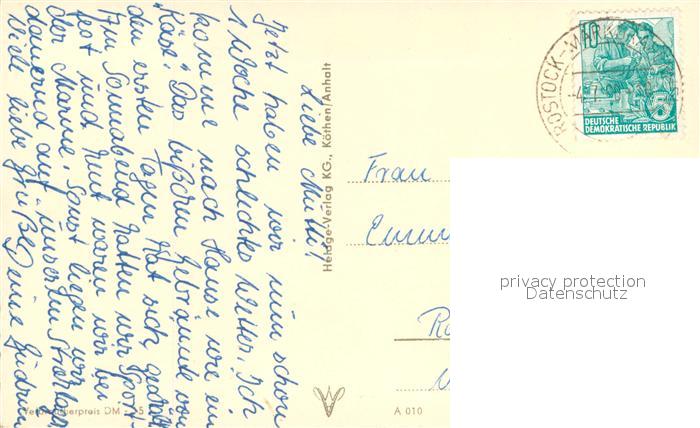 Liebe Mutti!
Jetzt haben wir nun schon
1 Woche schlechtes Wetter. Ich
komme nach Hause wie ein
"Käse". Das bißchen Gebräunte von
den ersten Tagen hat sich
Am Sonnabend hatten wir Sport-
fest und heut waren wir bei
der Marine. Sonst liegen wir
dauernd auf unserem
Viele liebe Grüße Deine Gudrun
Heldge-Verlag KG., Köthen/Anhalt
Verbraucherpreis DM
A 010
ROSTOCK-MARKGRA
10
5
DEUTSCHE
DEMOKRATISCHE REPUBLIK
Frau
privacy protection
Datenschutz